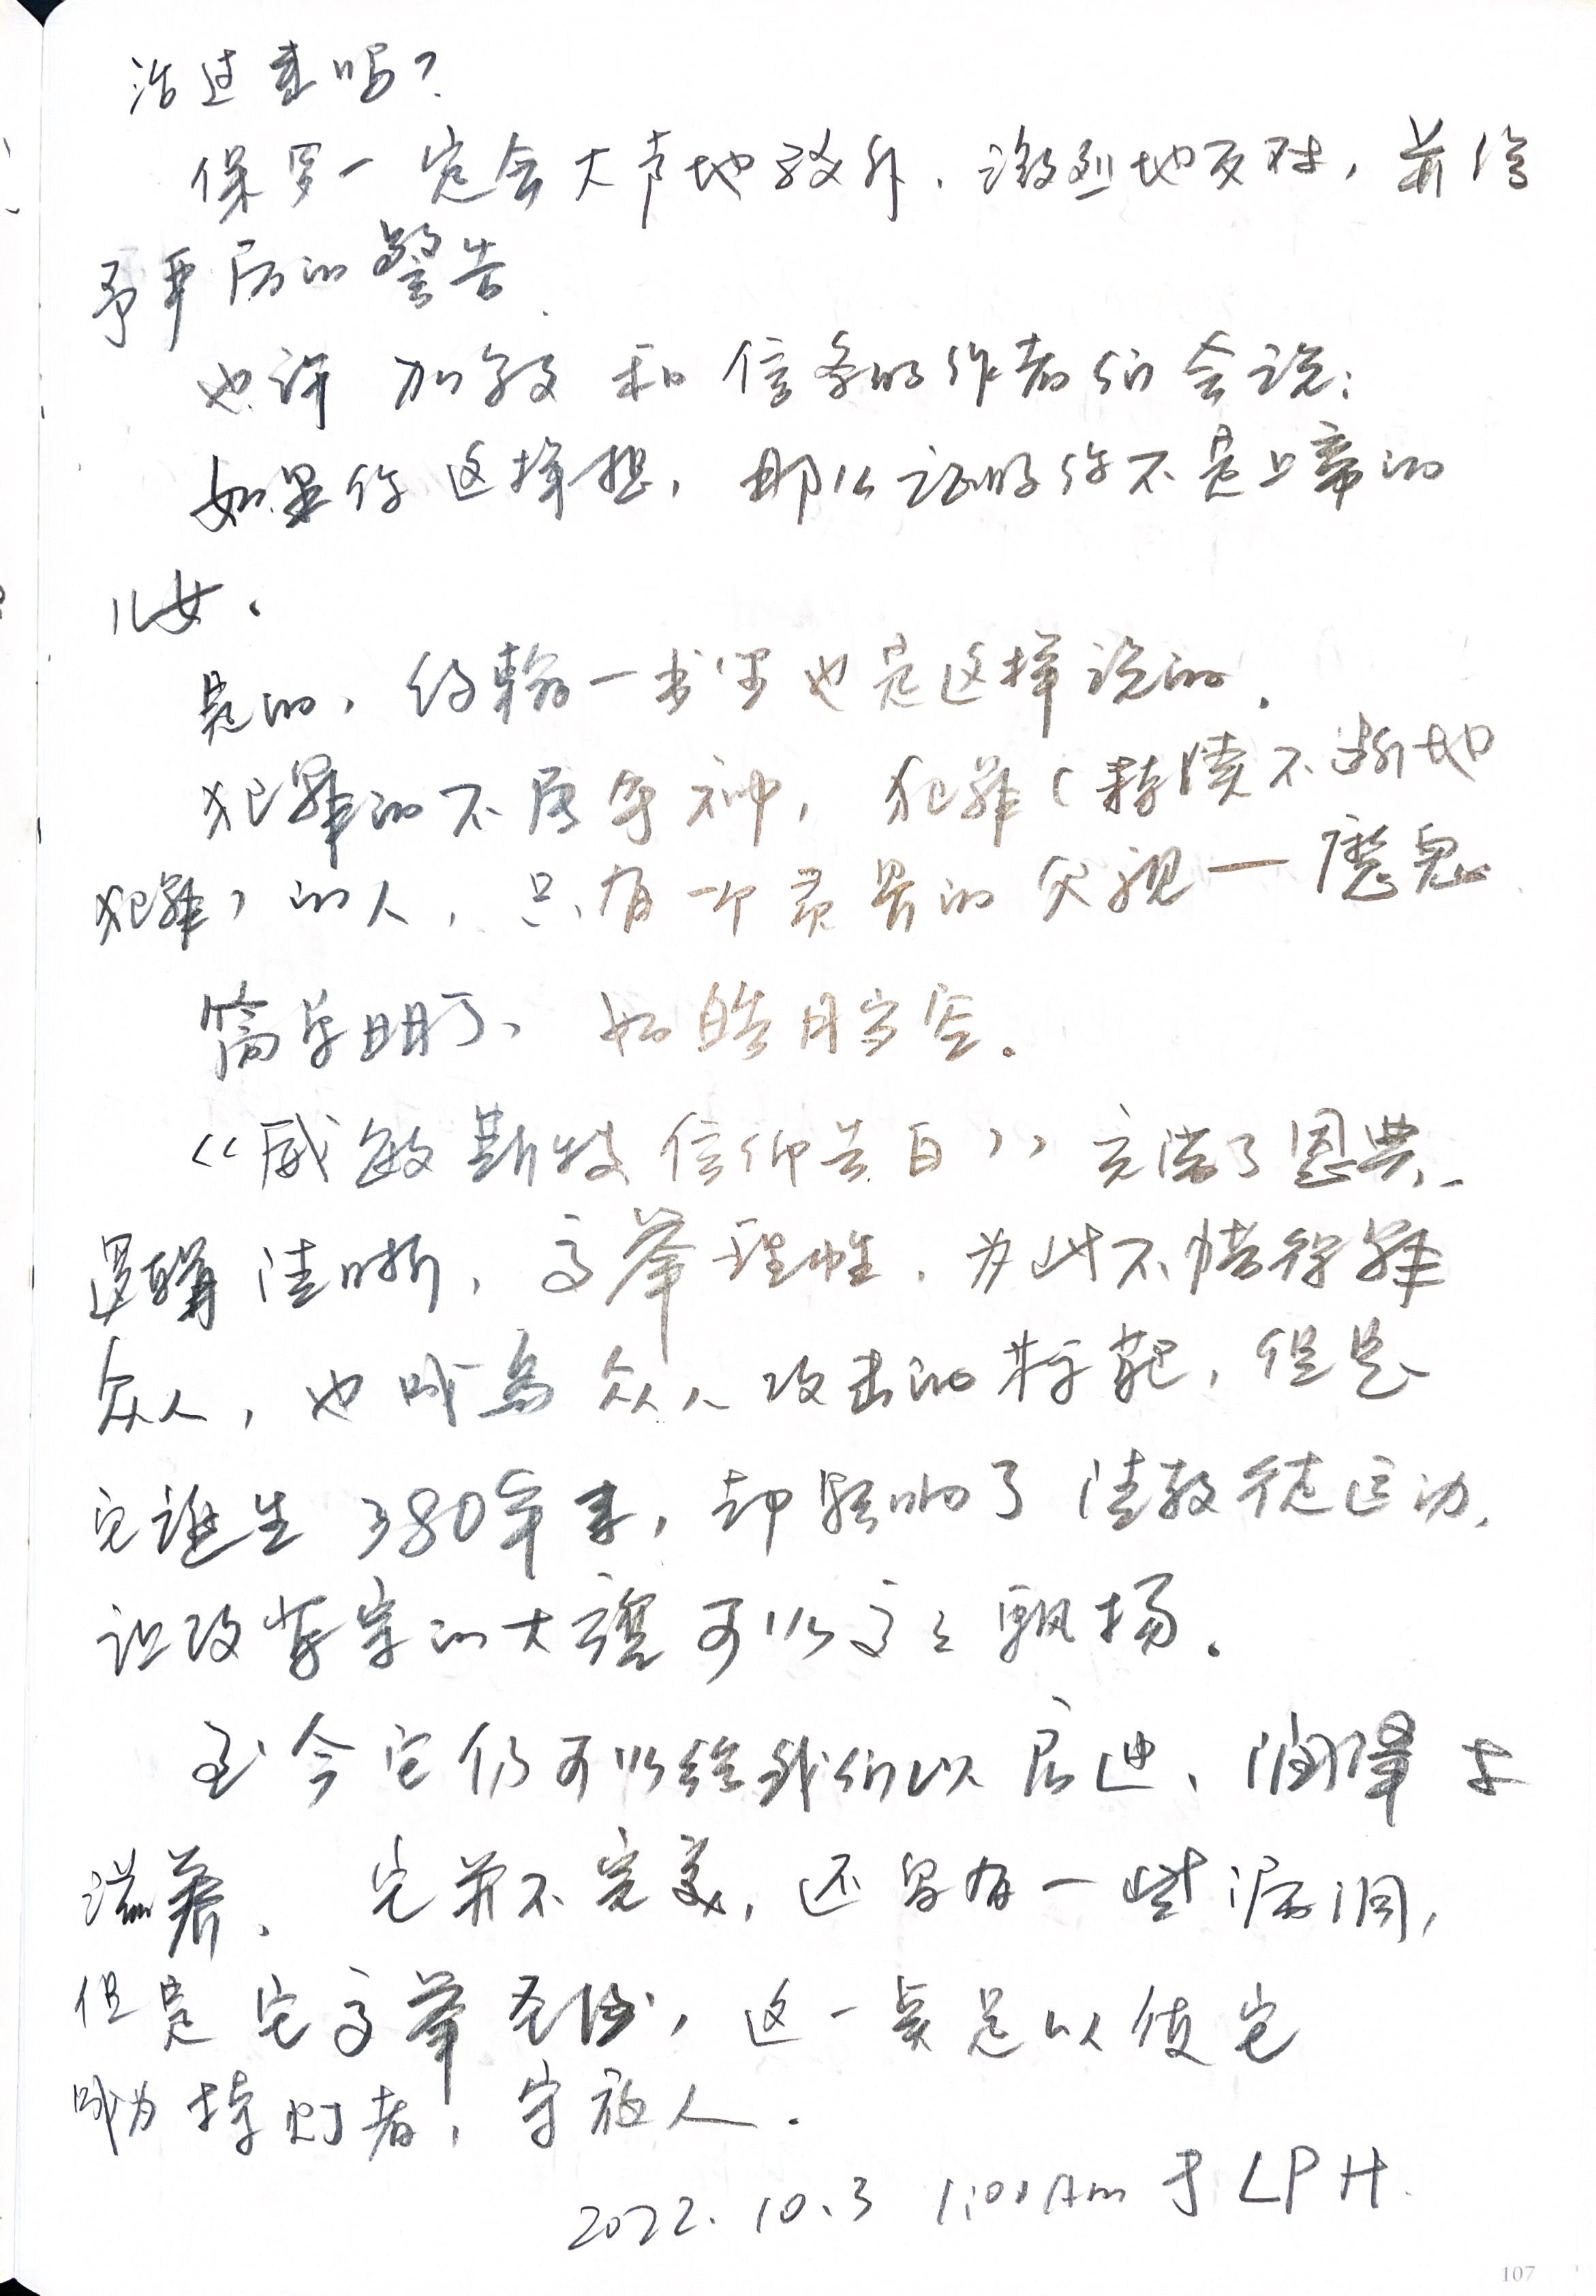 活过来吗?
保罗一定会大声地疾呼、激烈地反对,并给
予严厉的警告.
也许 加尔文 和 信条的作者们会说:
如果你这样想,那么证明你不是上帝的
儿女.
是的,约翰一书里也是这样说的.
犯罪的不属乎神,犯罪(持续不断地
犯罪)的人,只有一个灵界的父亲—魔鬼.
简单明了,如皓月当空.
《威敏斯特信仰告白》充满了恩典、
逻辑清晰,高举理性,为此不惜得罪
众人,也成为众人攻击的标靶,但是
它诞生380年来,却影响了清教徒运动,
让改革宗的大旗可以高高飘扬.
至今它仍可以给我们以启迪、润泽与
滋养、 它并不完美,还留有一些漏洞,
但是它高举圣经,这一点足以使它
成为持灯者,守夜人.
2022.10.3 1:01Am 于 LPH.
107